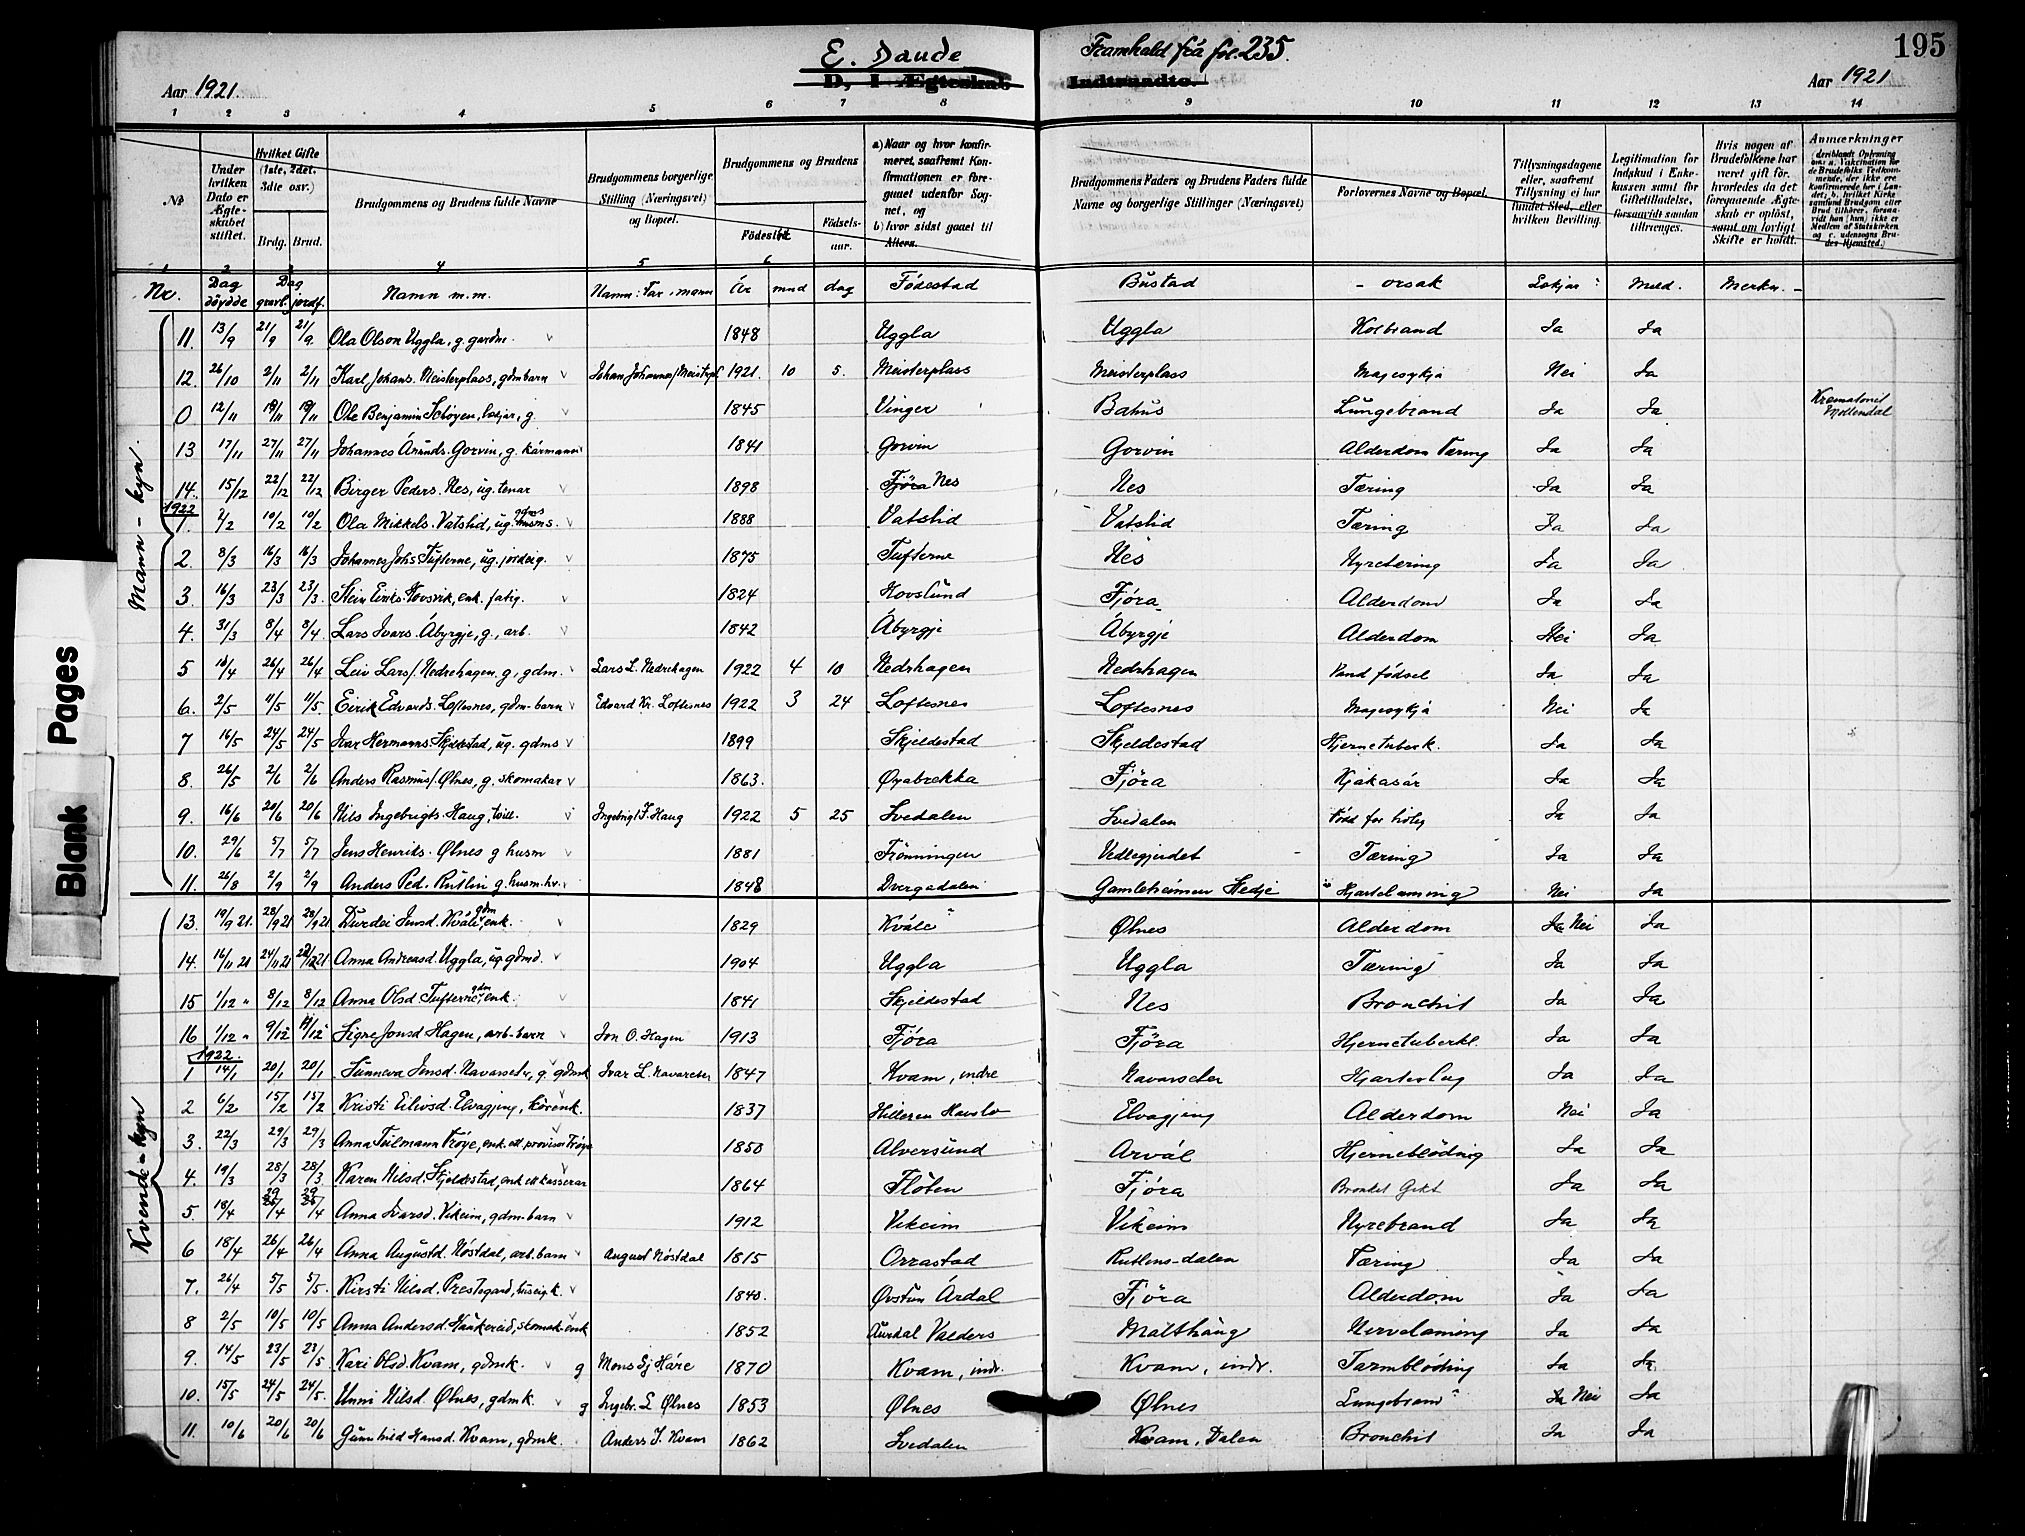 195
E. Daude
Framhald frå fol. 235.
Aar 1921
D, 1 Ægteskab
Indtraadte.
Aar 1921
1 2 3 4 5 6 7 8 9 10 11 12 13 14
No
Under hvilken Dato er Ægteskabet stiftet.
Hvilket Gifte (1ste, 2det, 3die osv.)
Brdg. Brud.
Brudgommens og Brudens fulde Navne
Brudgommens borgerlige Stilling (Næringsvei) og Bopæl.
Brudgommens og Brudens
Fødested
Fødselsaar.
a) Naar og hvor konfirmeret, saafremt Konfirmationen er foregaaet udenfor Sognet, og
b) hvor sidst gaaet til Alters.
Brudgommens Faders og Brudens Faders fulde Navne og borgerlige Stillinger (Næringsvei)
Forlovernes Navne og Bopæl.
Tillysningsdagene eller, saafremt Tillysning ei har fundet Sted, efter hvilken Bevilling.
Legitimation for Indskud i Enkekassen samt for Giftetilladelse, forsaavidt saadan tiltrænges.
Hvis nogen af Brudefolkene har været gift før, hvorledes da det foregaaende Ægteskab er opløst, samt om lovligt Skifte er holdt.
Anmærkninger
(deriblandt Oplysning om: a. Vakcination for de Brudefolks Vedkommende, der ikke ere Konfirmerede her i Landet; b. hvilket Kirkesamfund Brudgom eller Brud tilhører, forsaavidt han (hun) ikke er Medlem af Statskirken og c. udensogns Brudes Hjemsted.)
1 2 3 4 5 6
Nr. Dag döydde Dag gravl. jordf. Namn m.m. Namn: Far, mann År mnd dag Födestad Bustad - orsak Lækjar Meld. Merkn. -
Mann-kyn.
11. 13/9 21/9 21/9. Ola Olson Uggla, g. gardm. 1848 Uggla Uggla Kolbrand Ja Ja
12. 26/10 2/11 2/11 Karl Johans. Meisterplass, gdmbarn Johan Johannes/Meistepl. 1921. 10 5. Meisterplass Meisterplass Magesykja Nei Ja
0 12/11 19/11 19/11 Ole Benjamin Schöyen, lækjar, g. 1845 Vinger Bahus Lungebrand Ja Ja Krematoriet Möllendal
13 17/11 27/11 27/11 Johannes Årunds. Gorvin, g. kårmann 1841 Gorvin Gorvin Alderdom Tæring Ja Ja
14. 15/12 22/12 22/12 Birger Peders. Nes, ug. tenar 1898 Fjöra Nes Nes Tæring Ja Ja
1922
1. 2/2 10/2 10/2 Ola Mikkels. Vatslid, ug. husms. gdms 1888 Vatslid Vatslid Tæring Ja Ja
2 8/3 16/3 16/3 Johannes Johs Tufterne, ug. jordeig. 1875 Tufterne Nes Nyretæring Ja Ja
3 16/3 23/3 23/3. Stein Eiriks. Hovsvik, enk. fatig. 1824 Hovslund Fjöra Alderdom Ja Ja
4. 31/3 8/4 8/4 Lars Ivars. Åbyrgje, g., arb. 1842 Åbyrgje Åbyrgje Alderdom Nei Ja
5 10/4 26/4 26/4 Leiv Lars/. Nedrehagen g. gdm. Lars L. Nedrehagen 1922 4 10 Nedrhagen Nedrhagen Vand födsel Ja Ja
6. 2/5 11/5 11/5. Eirik Edvards. Loftesnes, gdm-barn Edvard Kr. Loftesnes 1922 3 24 Loftesnes Loftesnes Magesykja Nei Ja
7 16/5 24/5 24/5 Ivar Hermanns. Skjeldestad, ug. gdms 1899 Skjeldestad Skjeldestad Hjernetuberk. Ja Ja
8. 26/5 2/6 2/6 Anders Rasmus/. Ölnes, g. skomakar 1863. Öyabrekka Fjöra Kjåkasår Ja Ja
9. 16/6 20/6 20/6 Nils Ingebrigts. Haug, tvill. Ingebrigt J. Haug 1922 5 25 Svedalen Svedalen Född for tidleg Ja Ja
10. 29/6 5/7 5/7 Jens Henriks. Ölnes g husm 1881 Frönningen Vedlegjerdet Tæring Ja Ja
11. 26/8 2/9 2/9 Anders Ped. Rutlin g. husm. 1848 Dvergadalen Gamleheimen Hedje Hjartelamning Nei Ja
Kvende-kyn
13. 19/9 21. 28/9 21 28/9 21 Durdei Jensd. Kvåle, gdm enk. 1829 Kvåle Ölnes Alderdom Ja Nei Ja
14. 16/11 21 24/11 21 Anna Andreasd. Uggla, ug gdmd. 1904 Uggla Uggla Tæring Ja Ja
15 1/12 " 8/12 8/12 Anna Olsd Tufterne, gdm enk. 1841 Skjeldestad Nes Bronchit Ja Ja
16 1/12 " 9/12 Signe Jonsd Hagen, arb-barn Jon O. Hagen 1913 Fjöra Fjöra Hjernetuberkl. Ja Ja
1922.
1 14/1 20/1 20/1 Sunneva Jensd. Navarsete, g. gdmk Ivar L. Navarsete 1847 Kvam, indre Navarseter Hjarteslag Ja Ja
2 6/2 15/2 15/2 Kristi Eilivsd. Elvagjeng, kårenk. 1837 Hilleren Havslo Elvagjeng Alderdom Nei Ja
3. 22/3 29/3 29/3 Anna Teilmann Tröye, enk. ett provisor Tröye 1850 Alversund Arvål Hjerneblödnig Ja Ja
4. 19/3 28/3 28/3 Karen Nilsd. Skjeldestad, enk ett kasserar 1864 Flöten Fjöra Bronkit Gikt Ja Ja
5. 18/4 29/4 29/4 Anna Ivarsd. Vikeim, gdm-barn 1912 Vikeim Vikeim Nyrebrand Ja Ja
6 18/4 26/4 26/4 Anna Augustd. Nöstdal, arb. barn August Nöstdal 1815 Orrastad Rutlens-dalen Tæring Ja Ja
7. 26/4 5/5 5/5. Kirsti Nilsd. Prestegard, huseigk. 1840. Övstun Årdal Fjöra Alderdom Ja Ja
8 2/5 10/5 10/5 Anna Andersd. Haukereid, skomak-enk 1852 Aurdal Valders Malthaug Nervelamning Ja Ja
9. 14/5 23/5 23/5 Kari Olsd. Kvam, gdmk. g Mons Sj Håre 1870 Kvam, indr. Kvam, indr. Tarmblöding Ja Ja
10. 15/5 24/5 24/5. Unni Nilsd. Ölnes, gdmk. g Ingebr. L Ölnes 1853 Ölnes Ölnes Lungebrand Ja Nei Ja
11. 10/6 20/6 20/6 Gunnhild Hansd. Kvam, gdmk. Anders J. Kvam 1862 Svedalen Kvam, Dalen Bronchit Ja Ja
Blank Pages